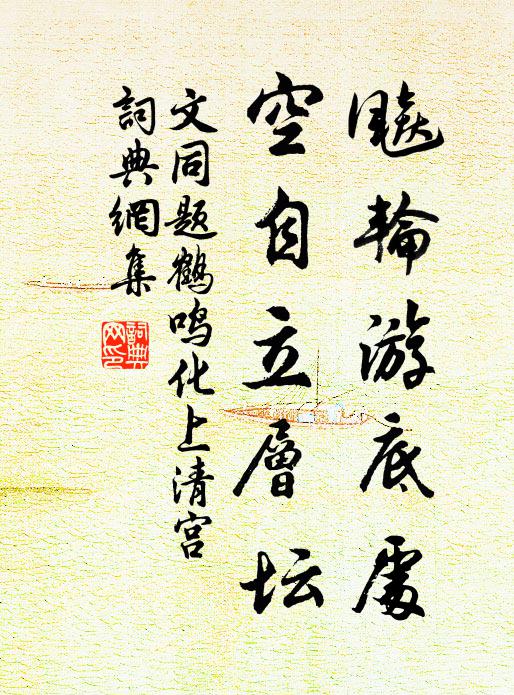 飚輪游底處
空自立層坛
文同题鶴鸣化上清宫
詞典網集
詞典
网印